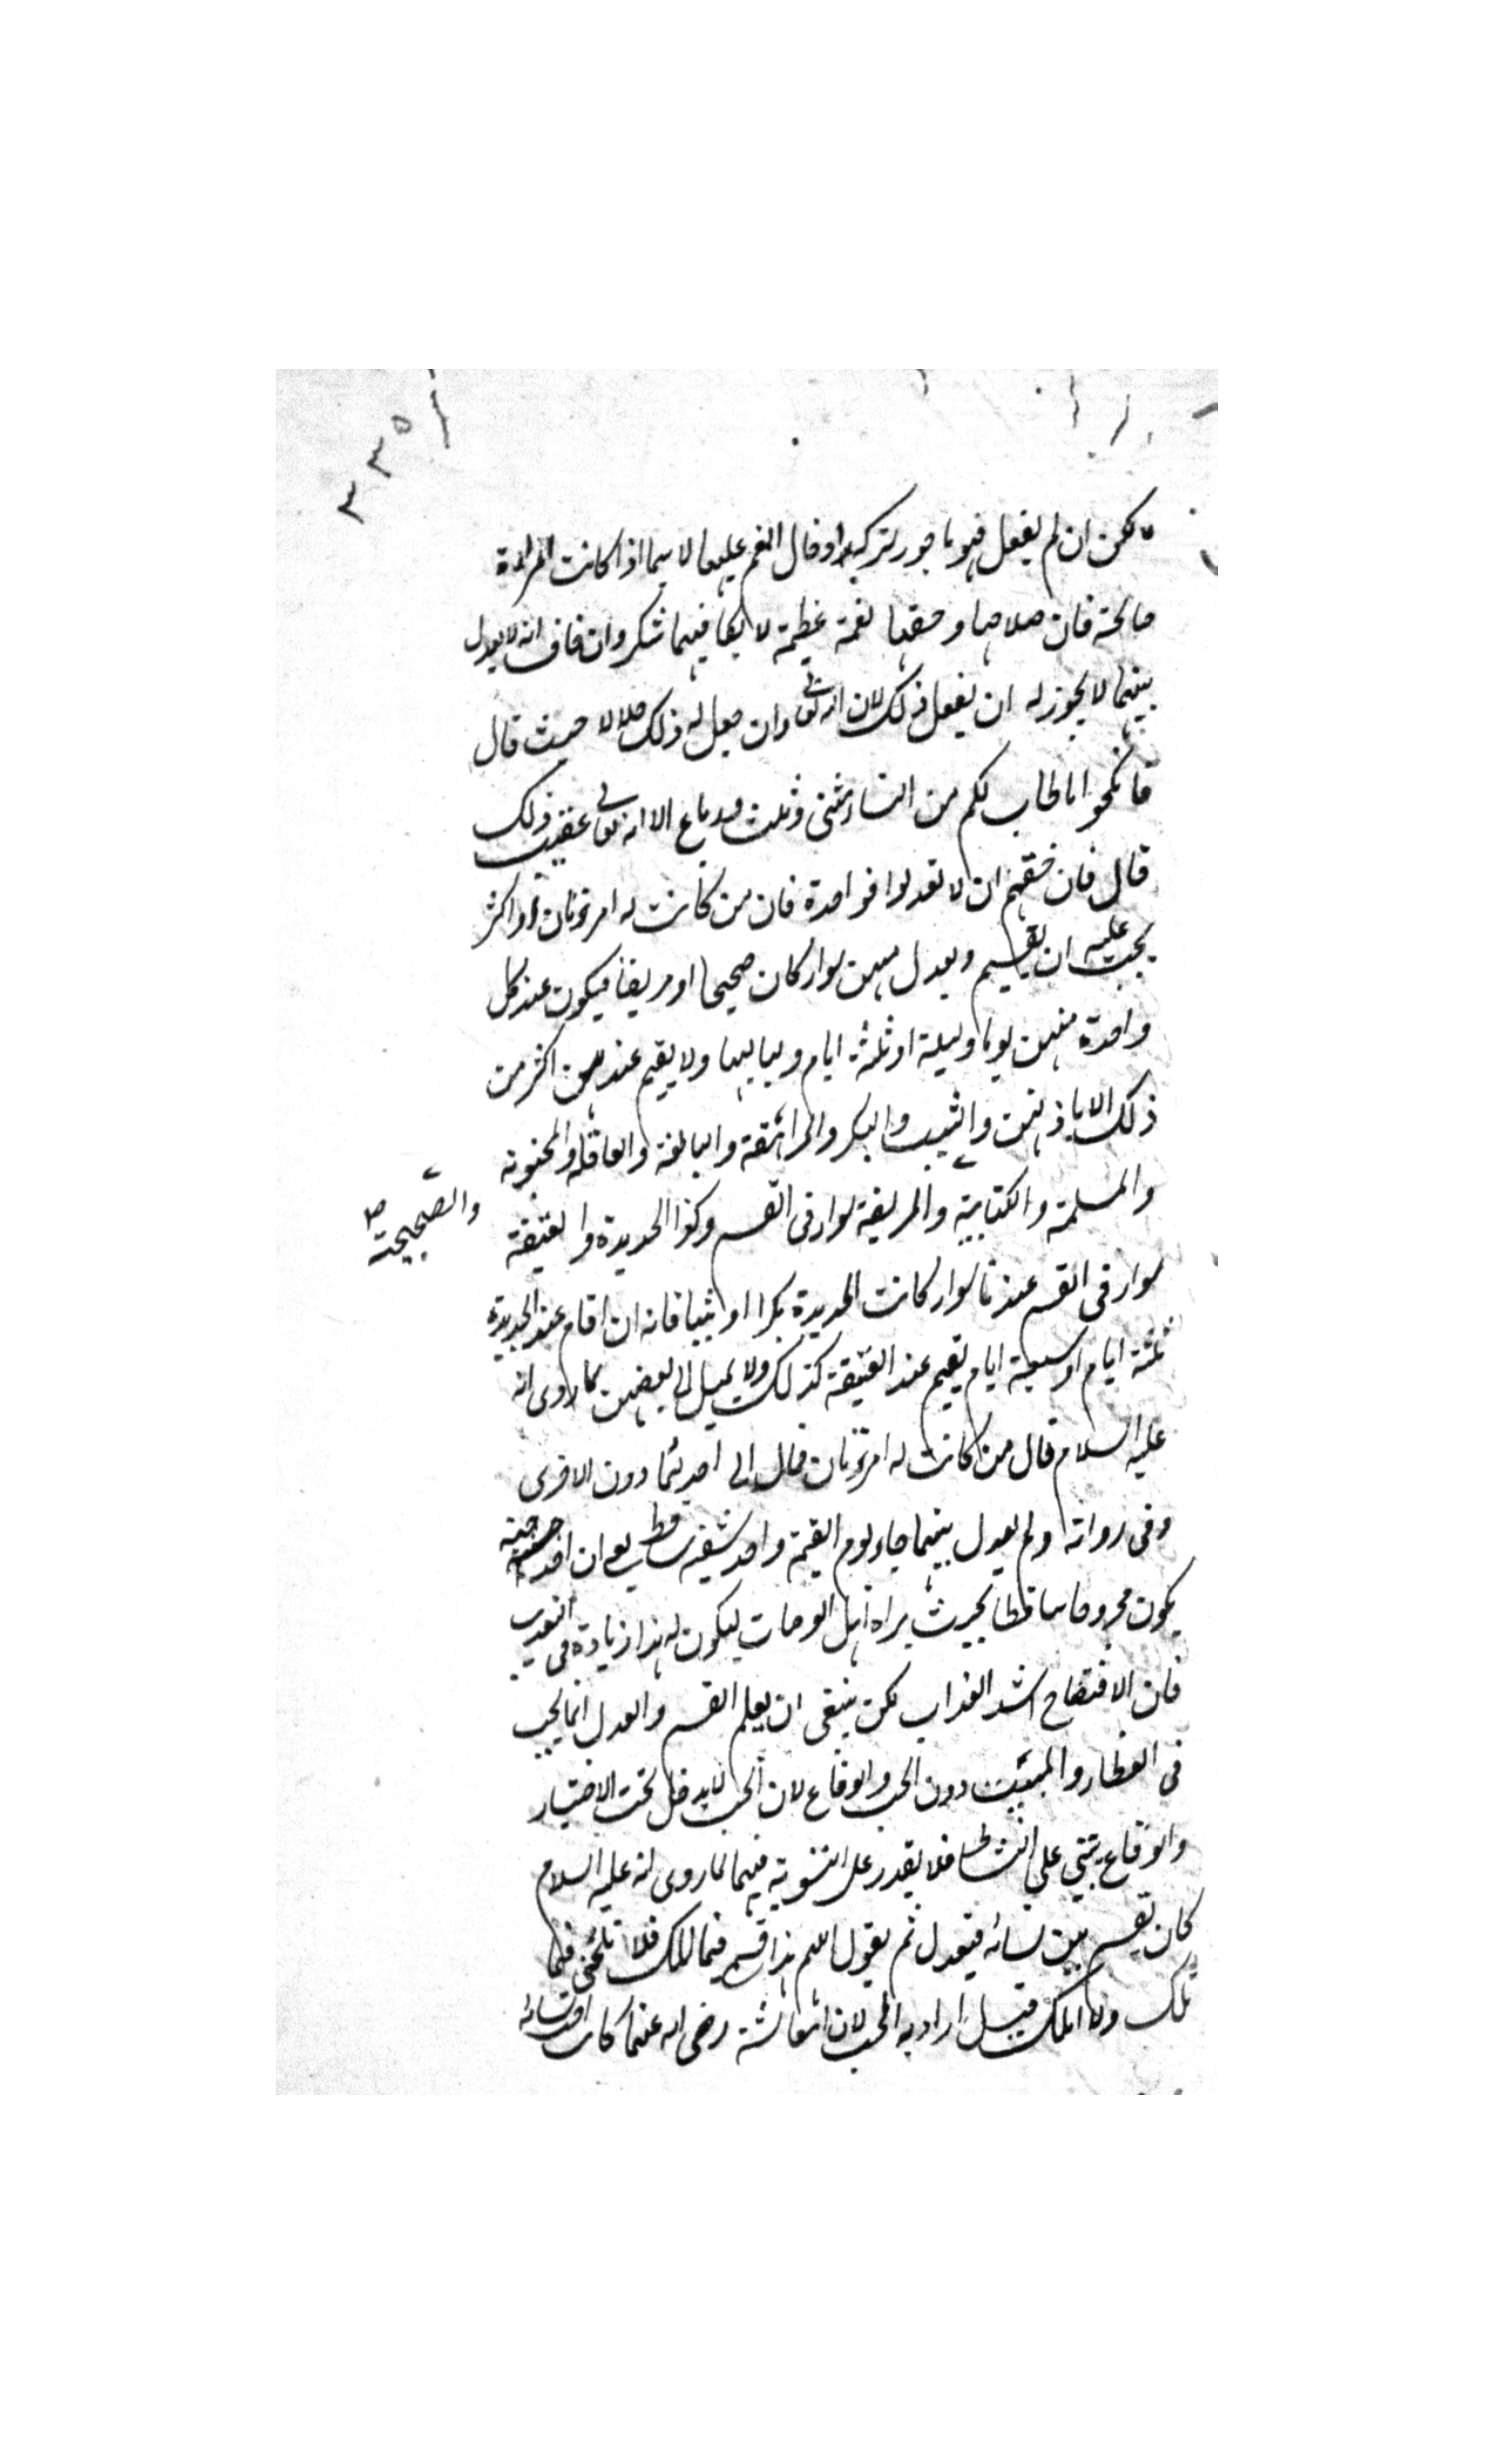 ٣٣٥
لكن ان لم يفعل فهو ماجور لتركه ادخال الغم عليها لا سيما اذا كانت المراة
صالحة فان صلاحها وحقها نعمة عظيمة لا يكافيهما شكر وان خاف انه لا يعدل
بينهما لا يجوز له ان يفعل ذلك لان الله تعالى وان جعل له ذلك حلالا حيث قال
فانكحوا ما طاب لكم من النساء مثنى وثلث ورباع الا انه تعالى عقيب ذلك
قال فان خفتم ان لا تعدلوا فواحدة فان من كانت له امرءتان او اكثر
يجب عليه ان يقسم ويعدل بينهن سواء كان صحيحا او مريضا فيكون عند كل
واحدة منهن يوما وليلة او ثلثة ايام ولياليها ولا يقيم عندهن اكثر من
ذلك الا باذنهن والثيب والبكر والمراهقة والبالغة والعاقلة والمجنونة
والمسلمة والكتابية والمريضة سواء فى القسم وكذا الجديدة والعتيقة
والصحيحة صح
سواء فى القسم عندنا سواء كانت الجديدة بكرا او ثيبا فانه ان اقام عند الجديدة
ثلثة ايام او سبعة ايام يقيم عند العتيقة كذلك ولا يميل الى بعضهن لما روى انه
عليه السلام قال من كانت له امرءتان فمال الى احديهما دون الاخرى
وفى رواية ولم يعدل بينهما جاء يوم القيمة واحد شقيه ساقط يعنى ان احد جنبيه
يكون مجروحا ساقطا بحيث يراه اهل العرصات ليكون لهذا زيادة فى التعذيب
فان الافتضاح اشد العذاب لكن ينبغى ان يعلم القسم والعدل انما يجب
فى العطاء والمبيت دون الحب والوقاع لان الحب لا يدخل تحت الاختيار
والوقاع يبتنى على النشاط فلا يقدر على التسوية فيهما لما روى انه عليه السلام
كان يقسم بين نسائه فيعدل ثم يقول اللهم هذا قسم فيما املك فلا تلمنى فيما
تملك ولا املك قيل اراد به الحب لان عائشة رضى الله عنها كانت احب نسائه